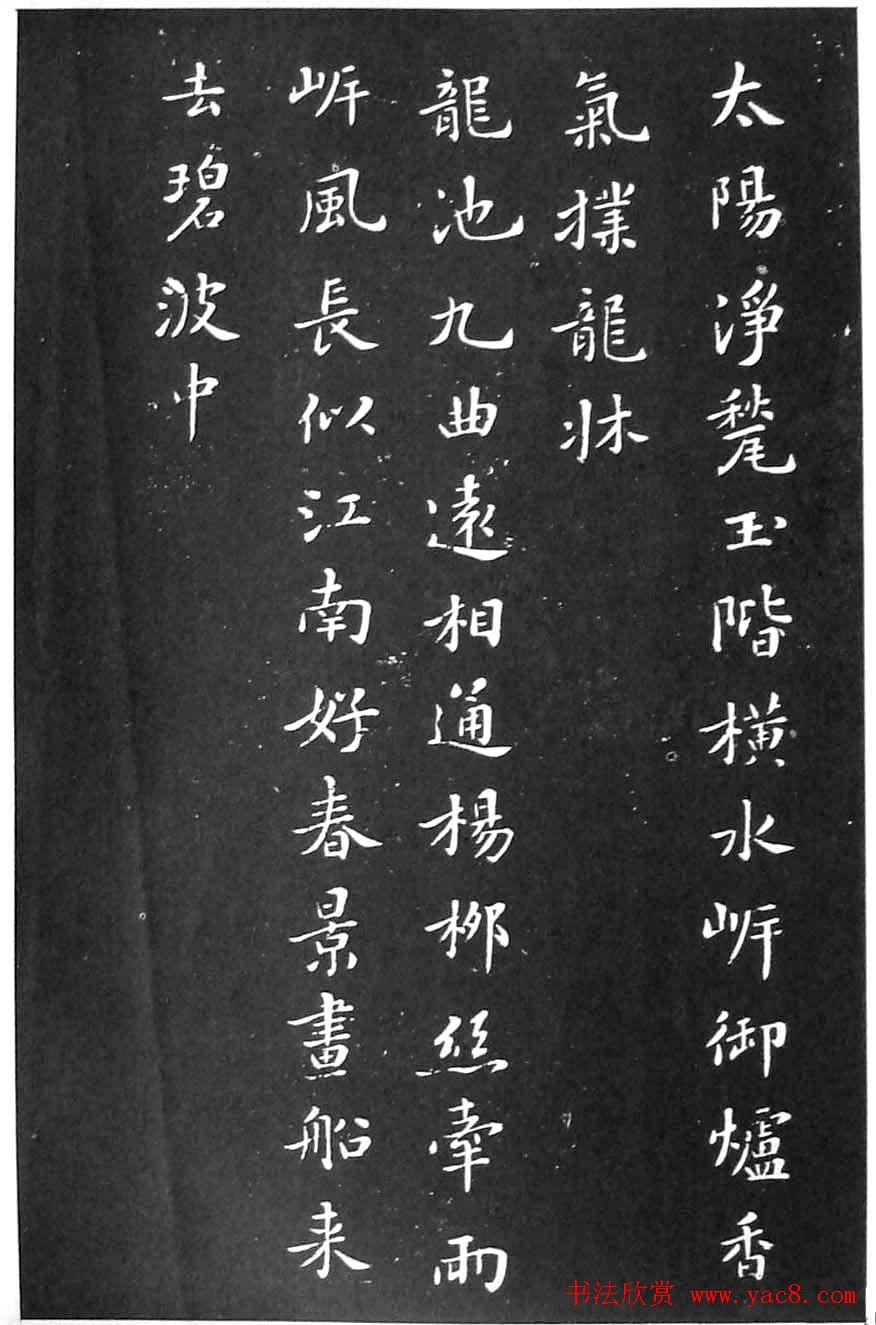 太陽淨甃玉階橫水岍御爐香
氣撲龍牀
龍池九曲遠相通楊柳絲牽兩
岍風長似江南好春景畫船来
去碧波中
书法欣赏 www.yac8.com